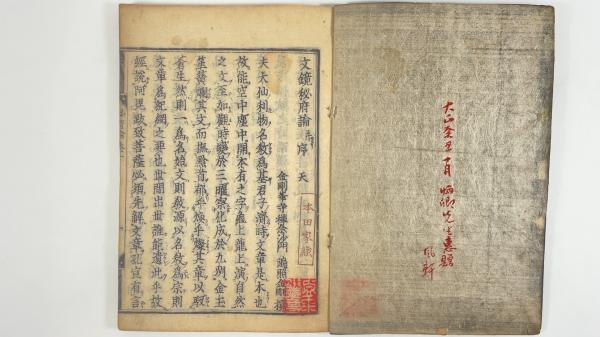 大正癸丑十月 炳卿先生惠
文鏡秘府論并序 天
金剛峯寺禪念沙門 遍照金剛 撰
夫大仙利物名教爲基君子濟時文章是本也
故能空中塵中開本有之字龜上龍上演自然
之文至如觀時變於三曜察化成於九州金玉
笙簧爛其文而撫黔首郁乎煥乎燦其章以馭
蒼生然則一爲名始文則教源以名教爲宗則
文章爲紀綱之要也世間出世誰能遺此乎故
經說阿毘跋致菩薩必須先解文章孔宣有言
本田家蔵